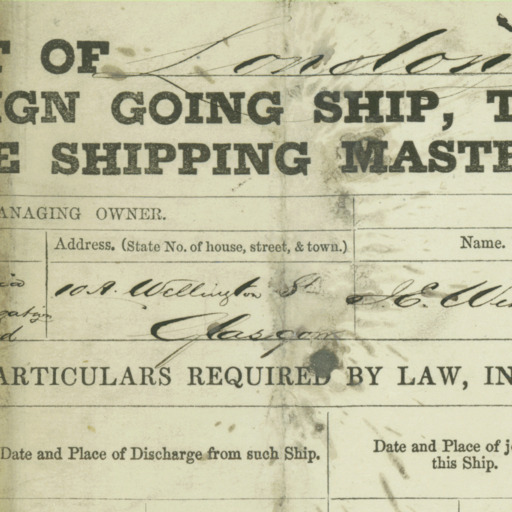 T OF London
IGN GOING SHIP, T
E SHIPPING MASTE
ANAGING OWNER.
Address. (State No. of house, street, & town.)
Name.
10 A. Wellington St
J. E. We
Glasgow
ARTICULARS REQUIRED BY LAW, IN
Date and Place of Discharge from such Ship.
Date and Place of j
this Ship.